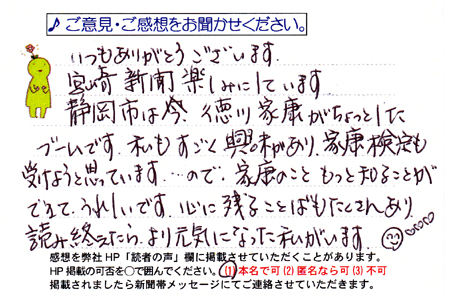 ♪ご意見・ご感想をお聞かせください。
いつもありがとうございます。
宮崎新聞楽しみにしています
静岡市は今、徳川家康がちょっとした
ブームです。私もすごく興味があり、家康検定も
受けようと思っています…ので、家康のこともっと知ることが
できて、うれしいです。心に残ることばもたくさんあり
読み終えたら、より元気になった私がいます。
感想を弊社HP「読者の声」欄に掲載させていただくことがあります。
HP掲載の可否を○で囲んでください。(1)本名で可(2)匿名なら可(3)不可
掲載されましたら新聞帯メッセージにてご連絡させていただきます。